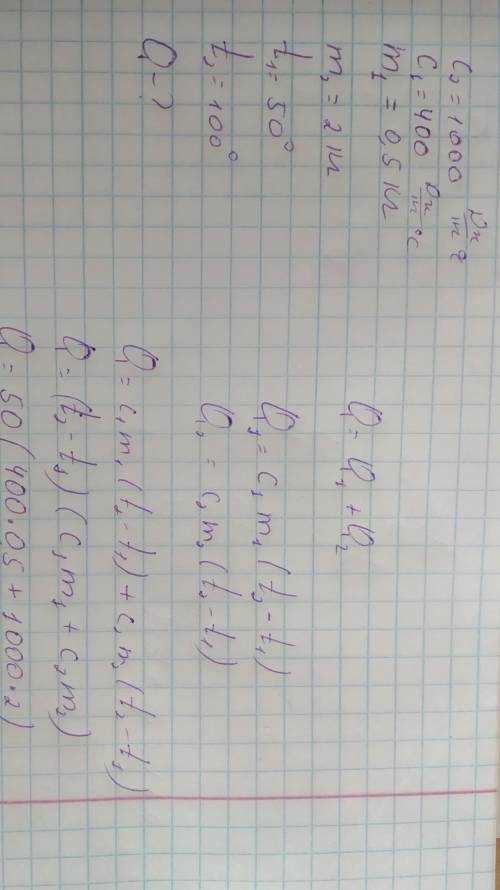 c₂ = 1000 Дж/кг °C
c₁ = 400 Дж/кг °C
m₁ = 0,5 кг
m₂ = 2 кг
t₁ = 50°
t₂ = 100°
Q - ?
Q = Q₁ + Q₂
Q₁ = c₁ m₁ (t₂ - t₁)
Q₂ = c₂ m₂ (t₂ - t₁)
Q = c₁ m₁ (t₂ - t₁) + c₂ m₂ (t₂ - t₁)
Q = (t₂ - t₁) (c₁ m₁ + c₂ m₂)
Q = 50 (400·0,5 + 1000·2)